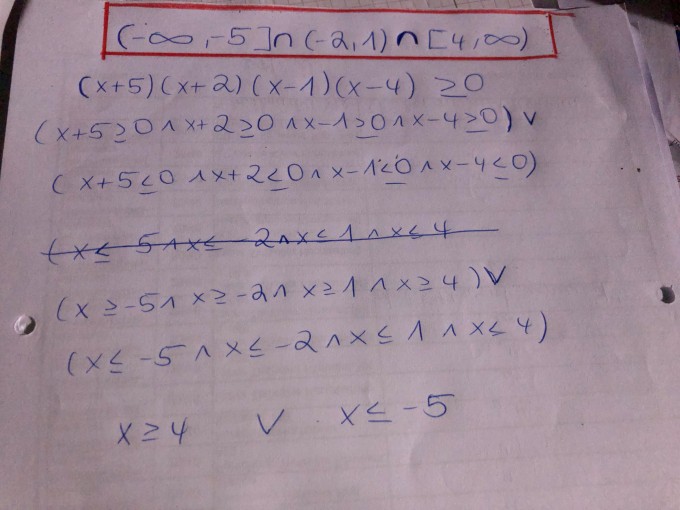 (-∞,-5]∩(-2,1)∩[4,∞)
(x+5)(x+2)(x-1)(x-4) ≥0
(x+5≥0∧x+2≥0∧x-1≥0∧x-4≥0)∨
(x+5≤0∧x+2≤0∧x-1≤0∧x-4≤0)
(x≤ 5∧x≤ -2∧x≤1∧x≤4
(x≥-5∧x≥-2∧x≥1∧x≥4)∨
(x≤-5∧x≤-2∧x≤1∧x≤4)
x≥4 ∨ x≤-5